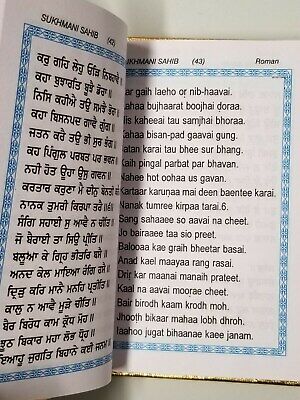 SUKHMANI SAHIB (42)
ਕਰੁ ਗਹਿ ਲੇਹੁ ਓੜਿ ਨਿਬਹਾਵੈ ॥
ਕਹਾ ਬੁਝਾਰਤਿ ਬੂਝੈ ਡੋਰਾ ॥
ਨਿਸਿ ਕਹੀਐ ਤਉ ਸਮਝੈ ਭੋਰਾ ॥
ਕਹਾ ਬਿਸਨਪਦ ਗਾਵੈ ਗੁੰਗ ॥
ਜਤਨ ਕਰੈ ਤਉ ਭੀ ਸੁਰ ਭੰਗ ॥
ਕਹ ਪਿੰਗੁਲ ਪਰਬਤ ਪਰ ਭਵਨ ॥
ਨਹੀ ਹੋਤ ਊਹਾ ਉਸੁ ਗਵਨ ॥
ਕਰਤਾਰ ਕਰੁਣਾ ਮੈ ਦੀਨੁ ਬੇਨਤੀ
ਨਾਨਕ ਤੁਮਰੀ ਕਿਰਪਾ ਤਰੈ
ਸੰਗਿ ਸਹਾਈ ਸੁ ਆਵੈ ਨ ਚੀਤਿ ॥
ਜੋ ਬੈਰਾਈ ਤਾ ਸਿਉ ਪ੍ਰੀਤਿ ॥
ਬਲੂਆ ਕੇ ਗ੍ਰਿਹ ਭੀਤਰਿ ਬਸੈ ॥
ਅਨਦ ਕੇਲ ਮਾਇਆ ਰੰਗਿ ਰਸੈ ॥
ਦ੍ਰਿੜੁ ਕਰਿ ਮਾਨੈ ਮਨਹਿ ਪ੍ਰਤੀਤਿ ॥
ਕਾਲੁ ਨ ਆਵੈ ਮੂੜੇ ਚੀਤਿ ॥
ਬੈਰ ਬਿਰੋਧ ਕਾਮ ਕ੍ਰੋਧ ਮੋਹ ॥
ਝੂਠ ਬਿਕਾਰ ਮਹਾ ਲੋਭ ਧ੍ਰੋਹ ॥
ਇਆਹੂ ਜੁਗਤਿ ਬਿਹਾਨੇ ਕਈ ਜਨਮ ॥
SUKHMANI SAHIB (43) Roman
Kar gaih laeho or nib-haavai.
Kahaa bujhaarat boojhai doraa.
Nis kaheeai tau samjhai bhoraa.
Kahaa bisan-pad gaavai gung.
Jatan karai tau bhee sur bhang.
Kaih pingal parbat par bhavan.
Kahee hot oohaa us gavan.
Kartaar karuṇaa mai deen baentee karai.
Nanak tumree kirpaa tarai.6.
Sang sahaaee so aavai na cheet.
Jo bairaaee taa sio preet.
Balooaa kae graih bheetar basai.
Anad kael maayaa rang rasai.
Driṛ kar maanai manaih prateet.
Kaal na aavai mooṛae cheet.
Bair birodh kaam krodh moh.
Jhooṭh bikaar mahaa lobh dhroh.
Iaahoo jugat bihaanae kaee janam.